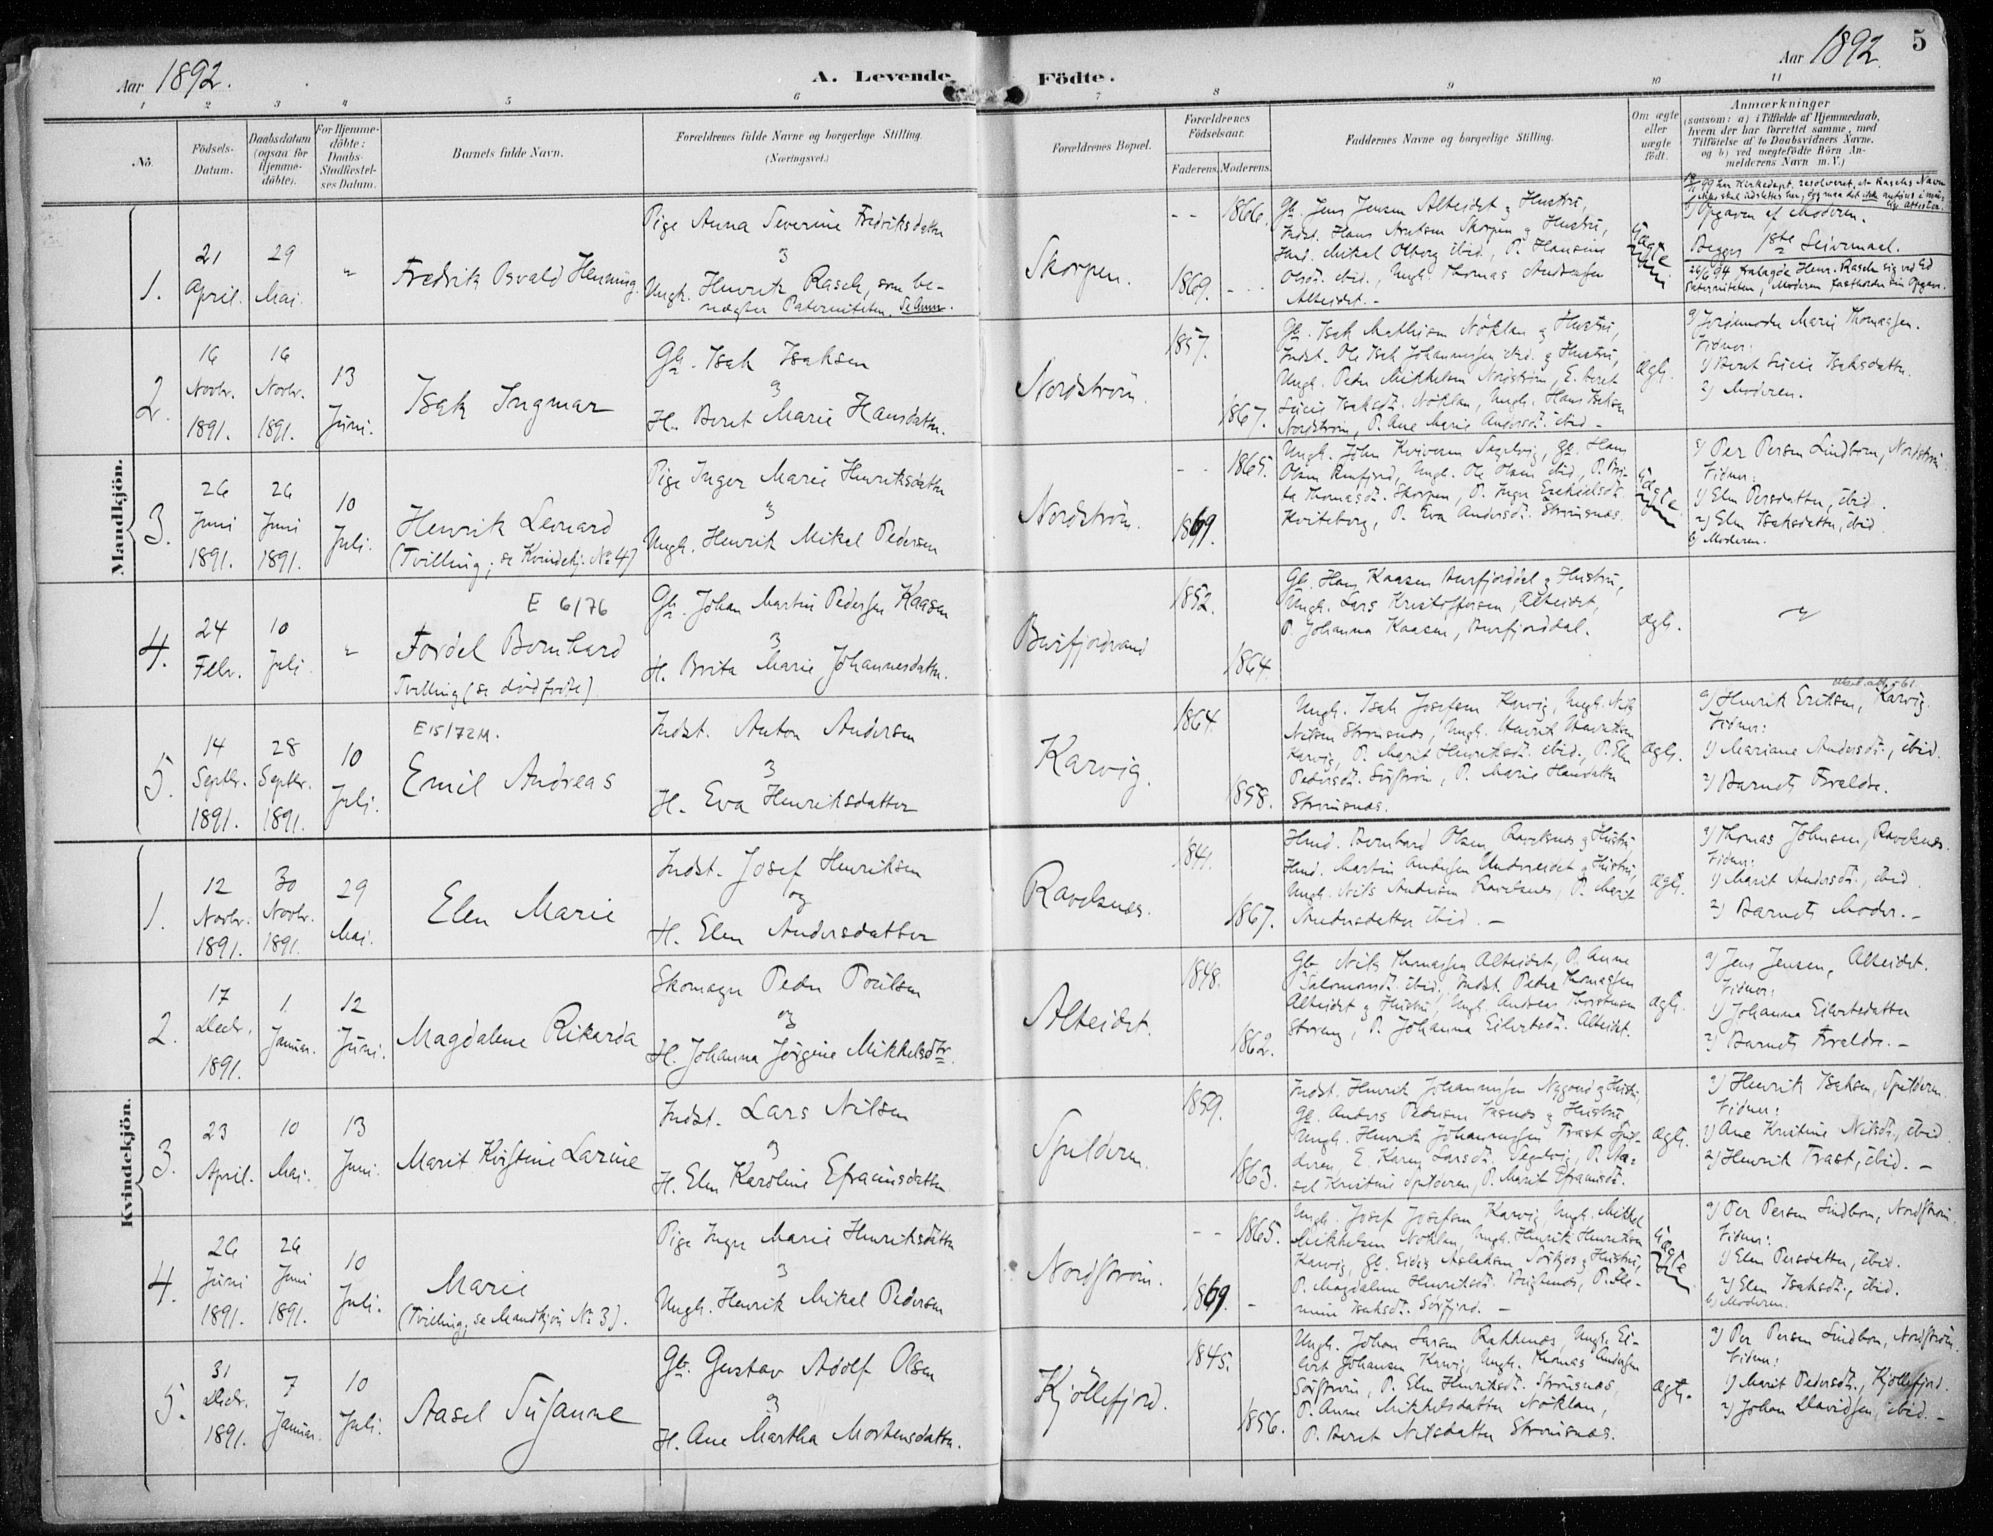 Aar 1892.
A. Levende Födte.
Aar 1892.
5
1 2 3 4 5 6 7 8 9 10 11
No.
Födsels-Datum.
Daabsdatum (ogsaa for Hjemme-döbte).
For Hjemme-döbte: Daabs-Stadfæstel-ses Datum.
Barnets fulde Navn.
Forældrenes fulde Navne og borgerlige Stilling.
(Næringsvei.)
Forældrenes Bopæl.
Forældrenes Födselsaar.
Faderens. Moderens.
Faddernes Navne og borgerlige Stilling.
Om ægte eller uægte födt.
Anmærkninger
(saasom: a) i Tilfælde af Hjemmedaab, hvem der har forrettet samme, med Tilföielse af to Daabsvidners Navne. og b) ved uægtefödte Börn An-melderens Navn m. V.)
Mandkjön.
1.
21 April.
29 Mai.
"
Fredrik Osvald Henning.
Pige Anna Severine Fredriksdatter
&
Ungk. Henrik Rasch, som be-
nægter Paterniteten.
Skorpen.
- - 1866.
1869. - -
Gb. Jens Jensen Alteidet & Hustru,
Indst. Hans Arntsen Skorpen & Hustru,
Ungk. Thomas Andersen
Alteidet. -
Uægte
b) Opgaven af Moderen.
Begges 1ste Leiermaal.
2.
16 Novbr. 1891.
16 Novbr. 1891.
13 Juni.
Isak Ingmar
Gb. Isak Isaksen
&
H. Beret Marie Hansdatter.
Nordström.
1857.
1867.
Gb. Isak Mathisen Nöklan & Hustru,
Indst. Ole Isak Johannessen ibid. & Hustru,
Ungk. Peder Mikkelsen Nordström, E. Beret
Lucie Isaksdt. Nöklan, Ungk. Hans Isaksen
Nordström, P. Ane Marie Andersdt. ibid -
ægte.
a) Jordemoder Marie Thomassen.
Vidner:
1) Beret Lucie Isaksdatter.
2) Moderen.
3.
26 Juni 1891.
26 Juni 1891.
10 Juli.
Henrik Leonard
(Tvilling; se Kvindekj. No 4)
Pige Inger Marie Henriksdatter
&
Ungk. Henrik Mikal Pedersen
Nordström.
- - 1865.
1869.
Olsen Burfjord, Ungk. Ole Olsen ibid, P. Bri-
ta Thomasdt. Skorpen, P. Inger Esekielsdt.
Kviteberg, P. Eva Andersdt. Strömsnæs.
Uægte.
a) Per Persen Lindbom, Nordström
Vidner:
1) Elen Persdatter, ibid.
2) Elen Isaksdatter, ibid
b) Moderen.
4.
24 Febr.
10 Juli.
"
E 6/76
Fordel Bernhard
Tvilling (se dödfödte)
Gb. Johan Martin Pedersen Kaasen
&
H. Brita Marie Johannesdatter.
Burfjordvand
1852.
1864.
Gb. Hans Kaasen Burfjorddal & Hustru,
Ungk. Lars Kristoffersen, Alteidet,
P. Johanna Kaasen, Burfjorddal.
ægte.
"
5.
14 Septbr. 1891.
28 Septbr. 1891.
10 Juli.
E 15/72 M.
Emil Andreas
Indst. Anton Andersen
&
H. Eva Henriksdatter
Karvig.
1864.
1858.
Ungk. Isak Josefsen Karvig, Ungk. Nils
Nilsen Strömsnæs, Ungk. Henrik Henriksen
Karvig, P. Marit Henriksdt. ibid., P. Elen
Pedersdt. Sörström, P. Marie Hansdatter
Strömsnæs.
ægte.
a) Henrik Eriksen, Karvig.
Vidner:
1) Mariane Andersdt., ibid.
2) Barnets Forældre.
Kvindekjön.
1.
12 Novbr. 1891.
30 Novbr. 1891.
29 Mai.
Elen Marie
Indst. Josef Henriksen
og
H. Elen Andersdatter
Ravelsnæs.
1841.
1867.
Hmd. Bernhard Olsen, Ravelsnæs & Hustru
Hmd. Martin Andersen Undereidet & Hustru,
Ungk. Nils Andersen Ravelsnæs, P. Marit
Andersdatter ibid. -
ægte.
a) Thomas Johnsen, Ravelsnæs.
Vidner:
1) Marit Andersdt., ibid.
2) Barnets Moder. -
2.
17 Decbr. 1891.
1 Januar.
12 Juni.
Magdalene Rikarda
Skomager Peder Poulsen
og
H. Johanna Jörgine Mikkelsdtr.
Alteidet.
1848.
1862.
Gb. Nils Thomassen Alteidet, P. Anne
Salomonsdt. ibid., Indst. Peder Thomassen
Alteidet & Hustru, Ungk. Andreas Thorstensen
Storeng, P. Johanna Eilertsdt. Alteidet.
ægte.
a) Jens Jensen, Alteidet.
Vidner:
1) Johanna Eilertsdatter
2) Barnets Forældre. -
3.
23 April.
10 Mai.
13 Juni.
Marit Kristine Larine
Indst. Lars Nilsen
&
H. Elen Karoline Efraimsdatter
Spilderen.
1859.
1863.
Indst. Henrik Johannessen Nygaard & Hustru,
Gb. Anders Pedersen Vasnæs & Hustru,
Ungk. Henrik Johannessen Trast Spil-
deren, E. Karen Larsdt. Segelvig, P. Aa-
sel Kristine Spilderen, P. Marit Efraimsdt.
ægte.
a) Henrik Isaksen, Spilderen.
Vidner:
1) Ane Kristine Nilsdt., ibid.
2) Henrik Trast, ibid. -
4.
26 Juni 1891.
26 Juni 1891.
10 Juli.
Marie
(Tvilling, se Mandkjön No 3).
Pige Inger Marie Henriksdatter
&
Ungk. Henrik Mikal Pedersen
Nordström.
- - 1865.
1869. -
Ungk. Josef Josefsen Karvig, Ungk. Mikkel
Mikkelsen Nöklan, Ungk. Henrik Henriksen
P. Magdalene Henriksdt.
Isaksdt. Sörfjord. -
Uægte
a) Per Persen Lindbom, Nordström.
Vidner:
1) Elen Persdatter, ibid.
2) Elen Isaksdt., ibid.
b) Moderen.
5.
31 Decbr. 1891.
7 Januar.
10 Juli.
Aasel Susanne
Gb. Gustav Adolf Olsen
&
H. Ane Martha Mortensdatter.
Kjöllefjord.
1845.
1856.
Ungk. Johan Larsen Rakkenæs, Ungk. Ei-
lert Johansen Karvig, Ungk. Thomas Andersen
Sörström, P. Elen Henriksdt. Strömsnæs,
P. Anne Mikkelsdatter Nöklan,
P. Beret Nilsdatter Strömsnæs.
ægte.
a) Per Persen Lindbom, Nordström.
Vidner:
1) Marit Pedersdt., Kjöllefjord.
2) Johan Davidsen, ibid. -